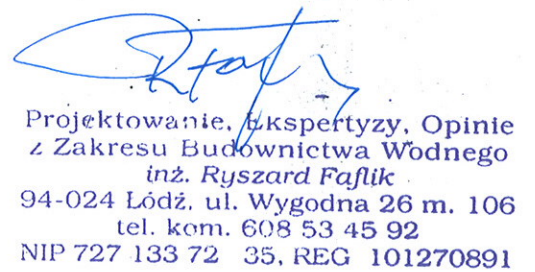 Projektowanie, Ekspertyzy, Opinie
z Zakresu Budownictwa Wodnego
inż. Ryszard Faflik
94-024 Łódź, ul. Wygodna 26 m. 106
tel. kom. 608 53 45 92
NIP 727 133 72 35, REG 101270891